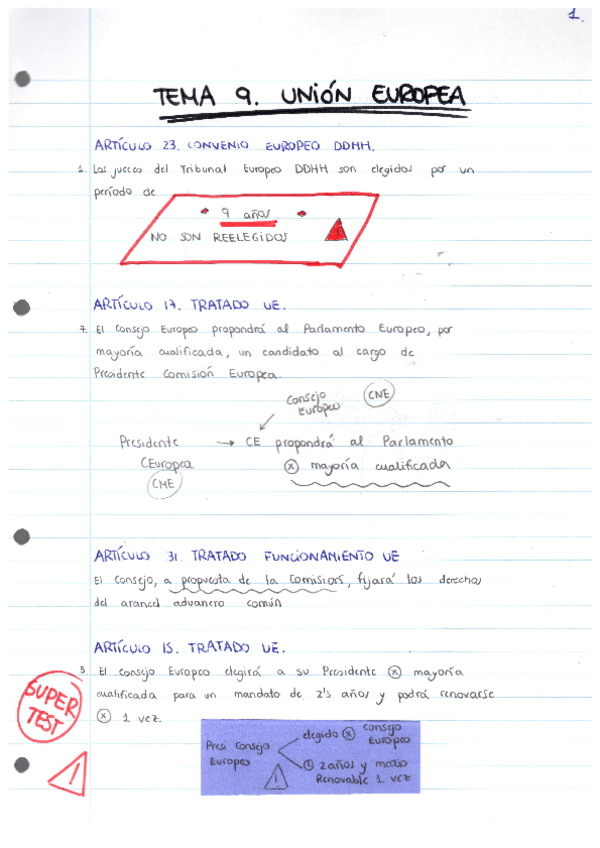 1.
TEMA 9. UNIÓN EUROPEA
ARTÍCULO 23. CONVENIO EUROPEO DDHH.
1. Los jueces del Tribunal Europeo DDHH son elegidos por un
período de
9 años
NO SON REELEGIDOS
!
ARTÍCULO 17. TRATADO UE.
7. El Consejo Europeo propondrá al Parlamento Europeo, por
mayoría cualificada, un candidato al cargo de
Presidente Comisión Europea.
Consejo
Europeo
CNE
Presidente → CE propondrá al Parlamento
CEuropea ⓧ mayoría cualificada
CME
ARTÍCULO 31. TRATADO FUNCIONAMIENTO UE
El Consejo, a propuesta de la Comisión, fijará los derechos
del arancel aduanero común
ARTÍCULO 15. TRATADO UE.
5. El consejo Europeo elegirá a su Presidente ⓧ mayoría
cualificada para un mandato de 2's años y podrá renovarse
ⓧ 1 vez.
SUPER
TEST
!
Presi Consejo
Europeo
!
elegido ⓧ Consejo
Europeo
2 años y medio
Renovable 1 vez